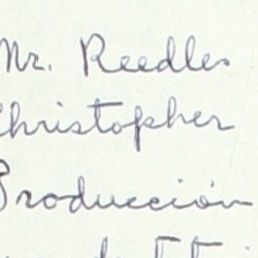 Mr. Reedles
Christopher
Producción